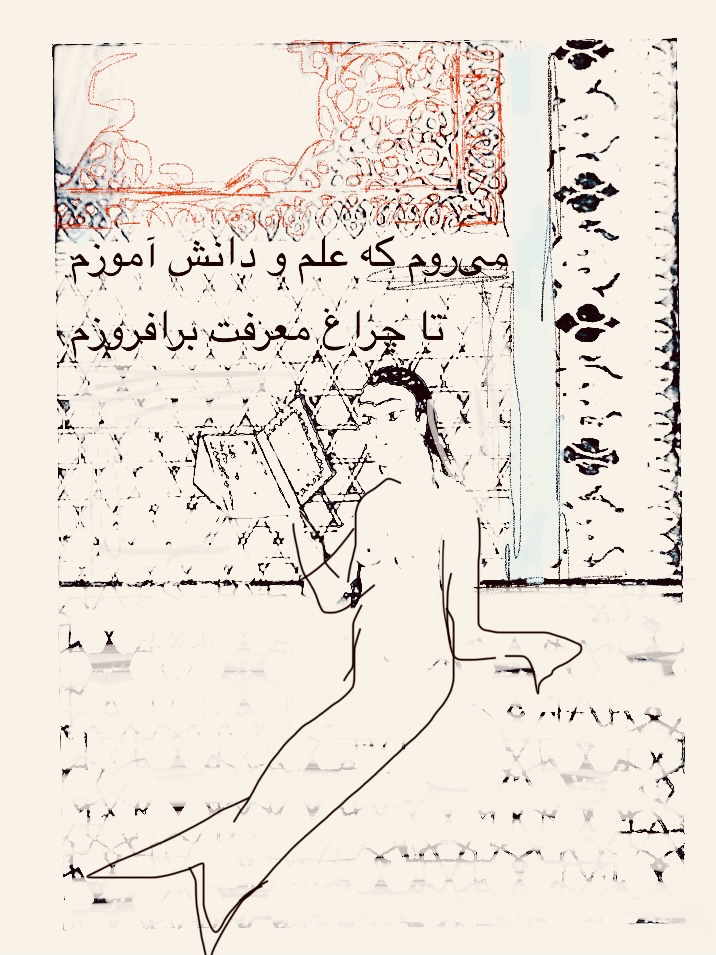 می‌روم که علم و دانش آموزم
تا چراغ معرفت برافروزم